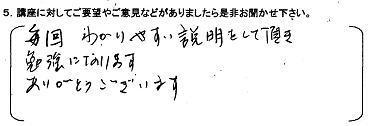 5. 講座に対してご要望やご意見などがありましたら是非お聞かせ下さい。
毎回 わかりやすい説明をして頂き
勉強になります
ありがとうございます